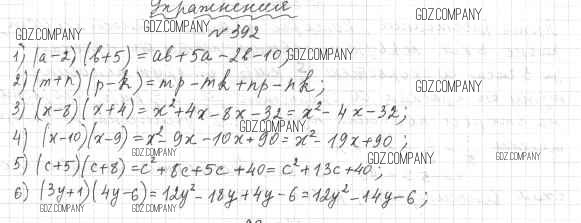 Упражнения
GDZ.COMPANY GDZ.COMPANY №392 GDZ.COMPANY
1) (a-2)(b+5) = ab+5a-2b-10;
GDZ.COMPANY
2) (m+n)(p-k) = mp-mk+np-nk;
GDZ.COMPANY
3) (x-8)(x+4) = x²+4x-8x-32 = x²-4x-32;
GDZ.COMPANY
4) (x-10)(x-9) = x²-9x-10x+90 = x²-19x+90;
GDZ.COMPANY GDZ.COMPANY GDZ.COMPANY
5) (c+5)(c+8) = c²+8c+5c+40 = c²+13c+40;
6) (3y+1)(4y-6) = 12y²-18y+4y-6 = 12y²-14y-6;
GDZ.COMPANY GDZ.COMPANY